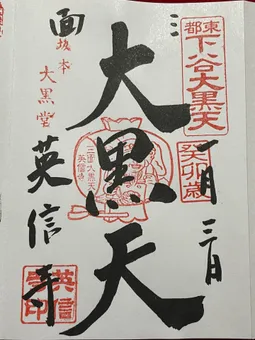 東都
下谷大黒天
癸卯歳
一月三日
大黒天
三面大黒天
英信寺
三面
坂本
大黒堂
英信寺
英信寺印